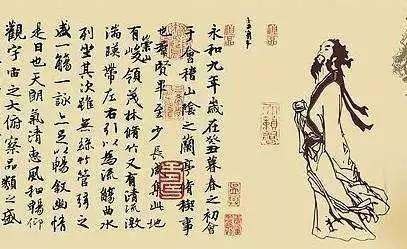 永和九年歲在癸丑暮春之初會
于會稽山陰之蘭亭脩禊事
也群賢畢至少長咸集此地
有崇山峻領茂林脩竹又有清流激
湍暎帶左右引以為流觴曲水
列坐其次雖無絲竹管弦之
盛一觴一詠亦足以暢敘幽情
是日也天朗氣清惠風和暢仰
觀宇宙之大俯察品類之盛